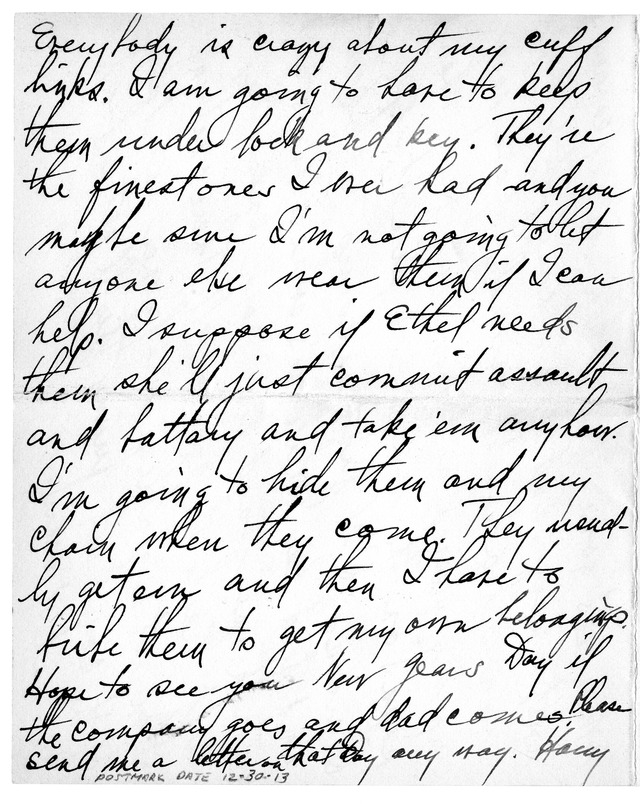 Everybody is crazy about my cuff
links. I am going to have to keep
them under lock and key. They're
the finest ones I ever had and you
maybe sure I'm not going to let
anyone else wear them if I can
help. I suppose if Ethel needs
them she'll just commit assault
and battary and take 'em anyhow.
I'm going to hide them and my
chain when they come. They usual-
ly get em and then I have to
bribe them to get my own belongings.
Hope to see you New Years Day if
the company goes and dad comes. Please
send me a letter on that Day any way. Harry
POSTMARK DATE 12-30-13